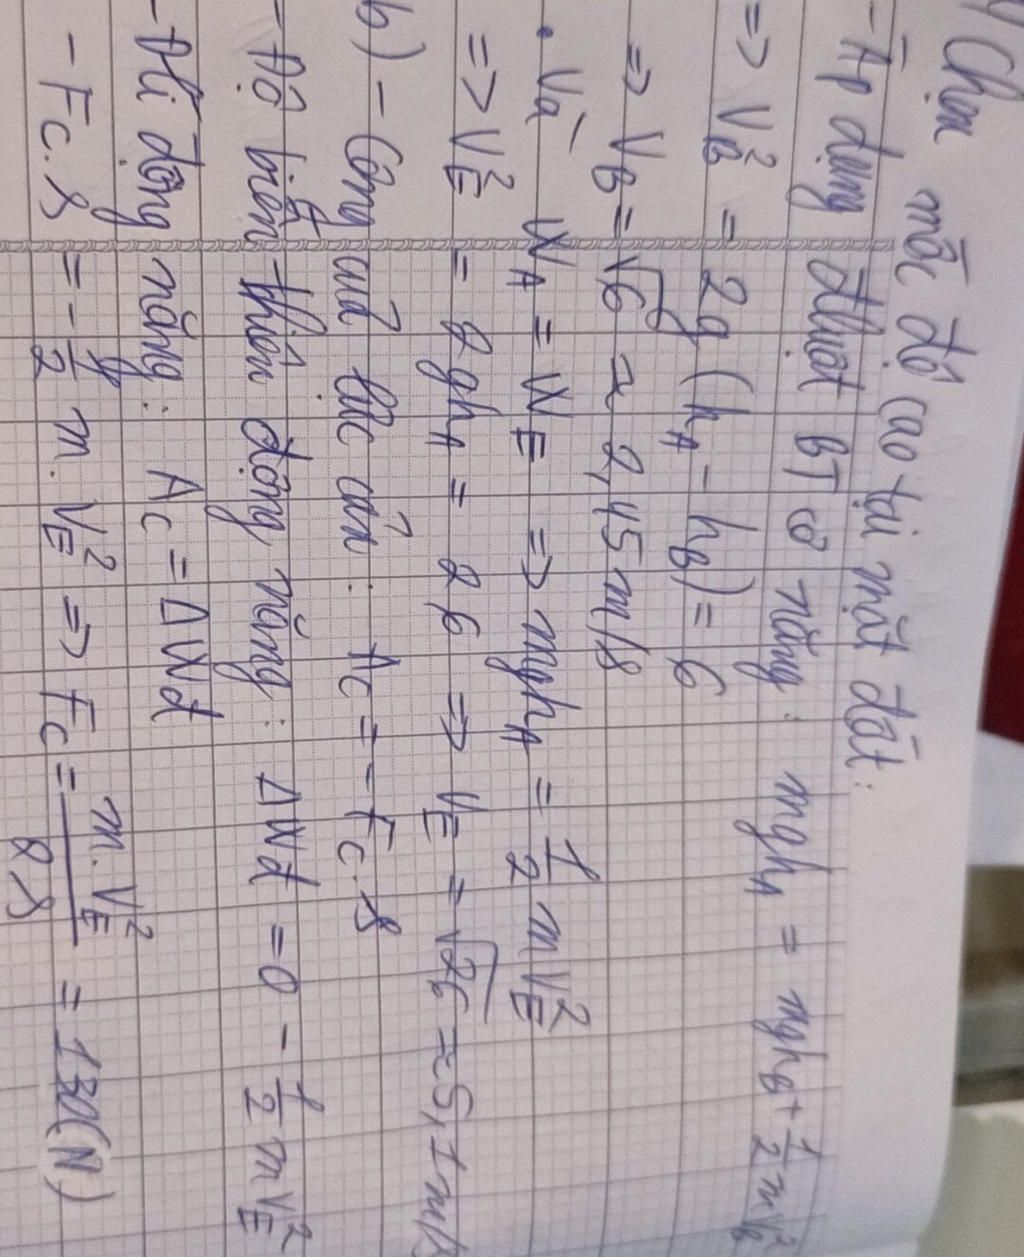 Chọn mốc độ cao tại mặt đất:
- Áp dụng ĐLuật BT cơ năng: mghA = mghB + 1/2 mVB²
=> VB² = 2g (hA - hB) = 6
=> VB = √6 ≈ 2,45 m/s
. Và WA = WE => mghA = 1/2 mVE²
=> VE² = 2ghA = 26 => VE = √26 ≈ 5,1 m/s
b) - Công của lực cản: Ac = - Fc.s
- Độ biến thiên động năng: ΔWđ = 0 - 1/2 mVE²
- Đl động năng: Ac = ΔWđ
- Fc.s = - 1/2 m.VE² => Fc = m.VE² / 2s = 130(N)